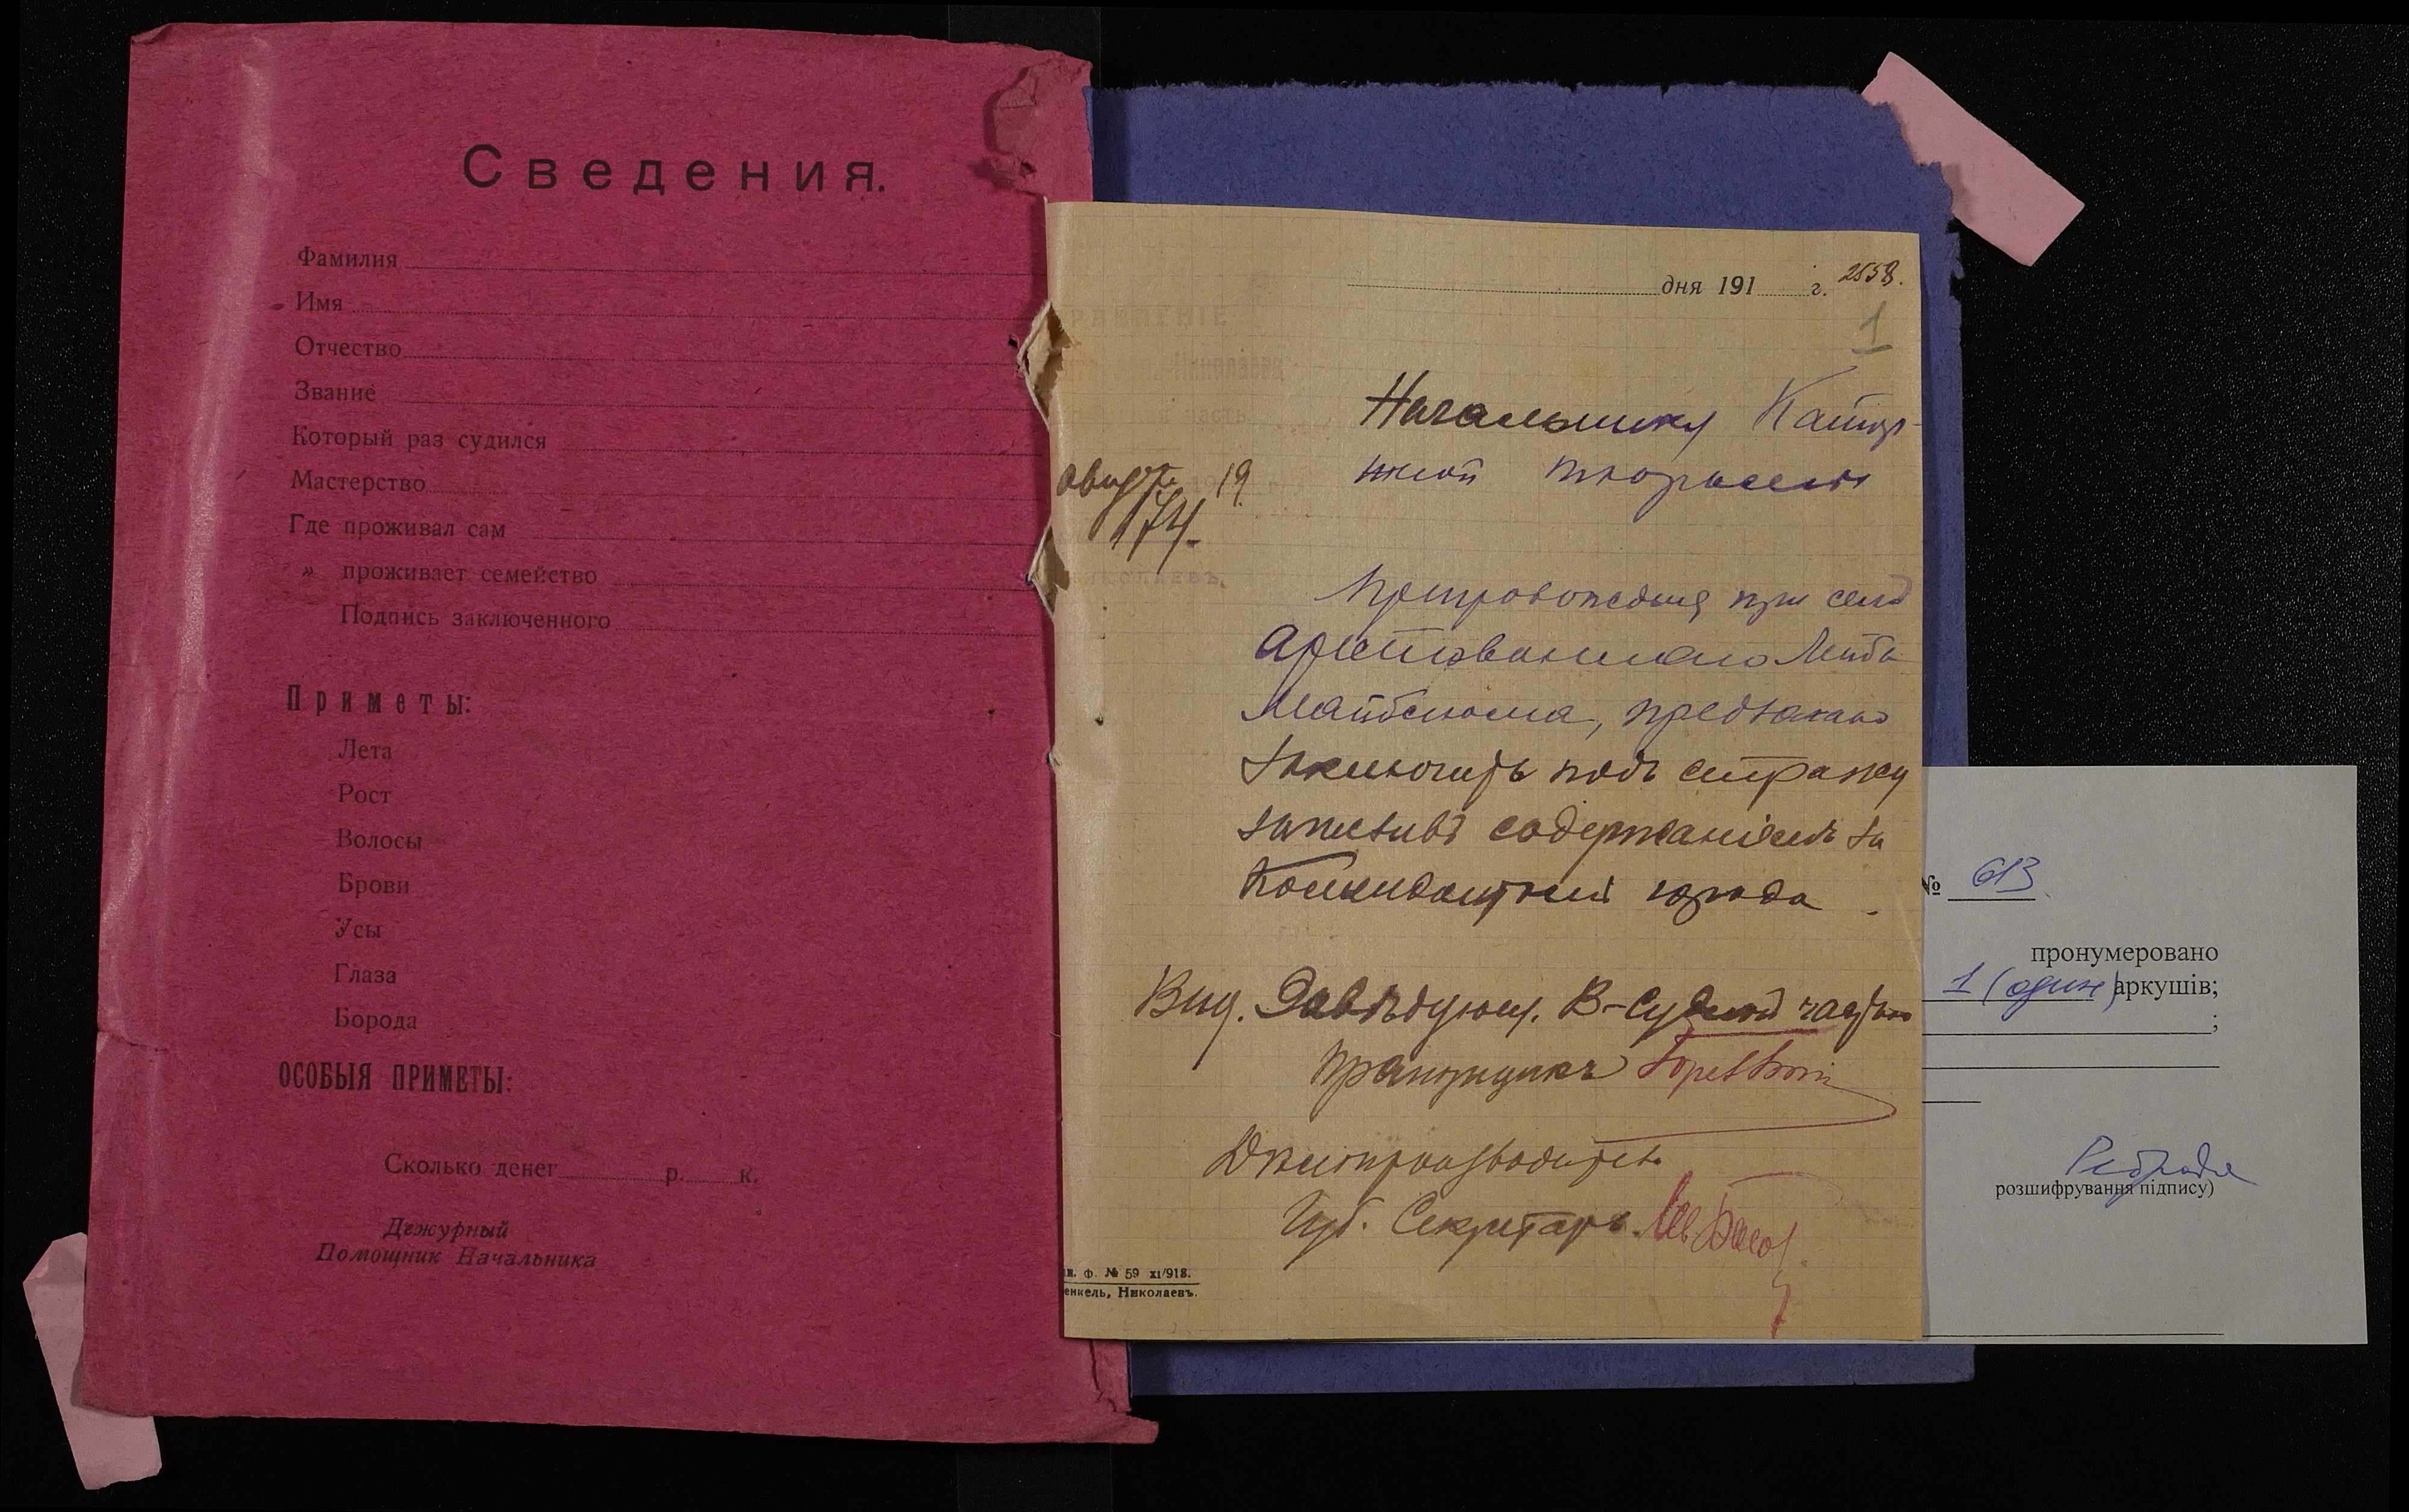 Сведения.
Фамилия
Имя
Отчество
Звание
Который раз судился
Мастерство
Где проживал сам
» проживает семейство
Подпись заключенного
Приметы:
Лета
Рост
Волосы
Брови
Усы
Глаза
Борода
ОСОБЫЯ ПРИМЕТЫ:
Сколько денег р. к.
Дежурный
Помощник Начальника
дня 191 г. 2558.
1
Начальнику Катор-
жной тюрьмы
август 19
174.
Препровождая при семъ
арестованнаго Лейба
предлагаю
заключить подъ стражу
содержаніемъ за
Комендантомъ города.
Вид. Завѣдующ. В-Судной частью
Прапорщикъ
Дѣлопроизводитель
Губ. Секретарь
ф. № 59 XI/918.
енкель, Николаевъ.
№ 613
пронумеровано
1 (один) аркушів;
;
розшифрування підпису)